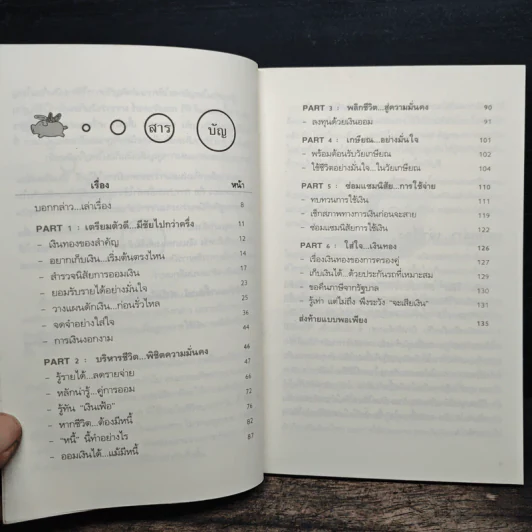 สาร บัญ
เรื่อง หน้า
บอกกล่าว...เล่าเรื่อง 8
PART 1 : เตรียมตัวดี...มีชัยไปกว่าครึ่ง 11
- เงินทองของสำคัญ 12
- อยากเก็บเงิน...เริ่มต้นตรงไหน 14
- สำรวจนิสัยการออมเงิน 17
- ยอมรับรายได้อย่างมั่นใจ 23
- วางแผนดักเงิน...ก่อนรั่วไหล 25
- จดจำอย่างใส่ใจ 36
- การเงินงอกงาม 44
PART 2 : บริหารชีวิต...พิชิตความมั่นคง 46
- รู้รายได้...ลดรายจ่าย 47
- หลักน่ารู้...คู่การออม 72
- รู้ทัน "เงินเฟ้อ" 76
- หากชีวิต...ต้องมีหนี้ 82
- "หนี้" นี้ทำอย่างไร 87
- ออมเงินได้...แม้มีหนี้
PART 3 : พลิกชีวิต...สู่ความมั่นคง 90
- ลงทุนด้วยเงินออม 91
PART 4 : เกษียณ...อย่างมั่นใจ 101
- พร้อมต้อนรับวัยเกษียณ 102
- ใช้ชีวิตอย่างมั่นใจ...ในวัยเกษียณ 104
PART 5 : ซ่อมแซมนิสัย...การใช้จ่าย 110
- ทบทวนการใช้เงิน 111
- เช็กสภาพทางการเงินก่อนจะสาย 119
- ซ่อมแซมนิสัยการใช้เงิน 121
PART 6 : ใส่ใจ...เงินทอง 126
- เรื่องเงินทองของการครองคู่ 127
- เก็บเงินได้...ด้วยประกันรถที่เหมาะสม 129
- ขอคืนภาษีจากรัฐบาล 130
- รู้เท่า แต่ไม่ถึง พึงระวัง "จะเสียเงิน" 131
ส่งท้ายแบบพอเพียง 135